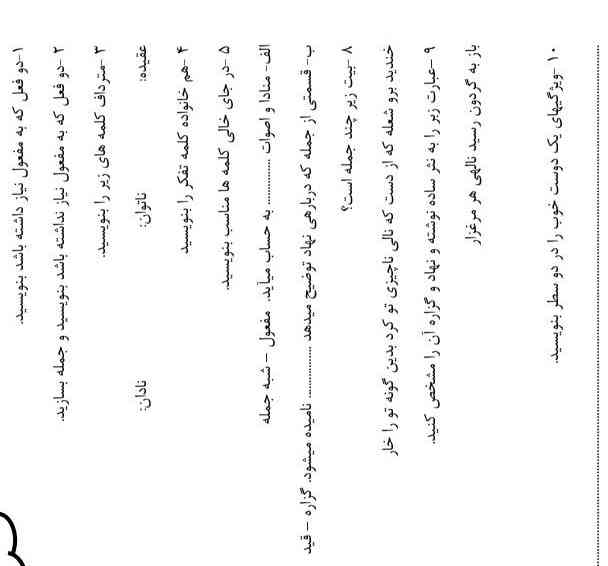 ۱-دو فعل که به مفعول نیاز داشته باشد بنویسید.
۲-دو فعل که به مفعول نیاز نداشته باشد بنویسید و جمله بسازید.
۳-مترداف کلمه های زیر را بنویسید.
عقیده: ناتوان: نادان:
۴-هم خانواده کلمه تفکر را بنویسید
۵-در جای خالی کلمه ها مناسب بنویسید.
الف- منادا و اصوات ............... به حساب میآید. مفعول – شبه جمله
ب- قسمتی از جمله که دربارهی نهاد توضیح میدهد ............... نامیده میشود. گزاره – قید
۸-بیت زیر چند جمله است؟
خندید برو شعله که از دست که نالی ناچیزی تو کرد بدین گونه تو را خار
۹-عبارت زیر را به نثر ساده نوشته و نهاد و گزاره آن را مشخص کنید.
باز به گردون رسید نالهی هر مرغزار
۱۰-ویژگیهای یک دوست خوب را در دو سطر بنویسید.